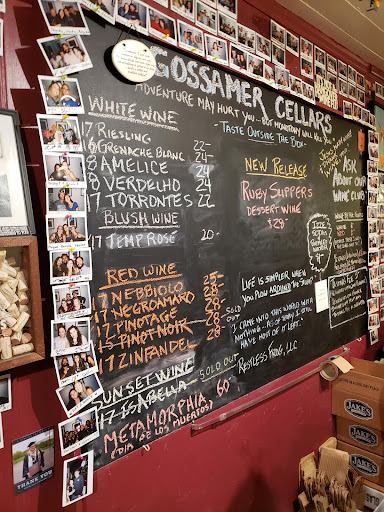 GOSSAMER CELLARS
ADVENTURE MAY HURT YOU - BUT MONOTONY WILL KILL YOU
- TASTE OUTSIDE THE BOX -
WHITE WINE
17 RIESLING
16 GRENACHE BLANC 22-
18 AMELICE 24-
18 VERDELHO 24
17 TORRONTES 22-
BLUSH WINE
17 TEMP ROSE 20-
RED WINE
17 NEBBIOLO 25-
17 NEGROAMARO 28-
17 PINOTAGE 28- SOLD OUT
15 PINOT NOIR 28-
17 ZINFANDEL 28
SUNSET WINE
17 ISABELLA - SOLD OUT
METAMORPHIA, 60
(DIA DE LOS MUERTOS)
NEW RELEASE
RUBY SLIPPERS
DESSERT WINE
29-
LIFE IS SIMPLER WHEN
YOU PLOW AROUND THE STUMP
I CAME INTO THIS WORLD WITH
NOTHING - AS OF TODAY I STILL
HAVE MOST OF IT LEFT.
RESTLESS FROG, LLC
ASK
ABOUT OUR
WINE CLUB!
THANK YOU
JAKE'S
JAKE'S
JAKE'S